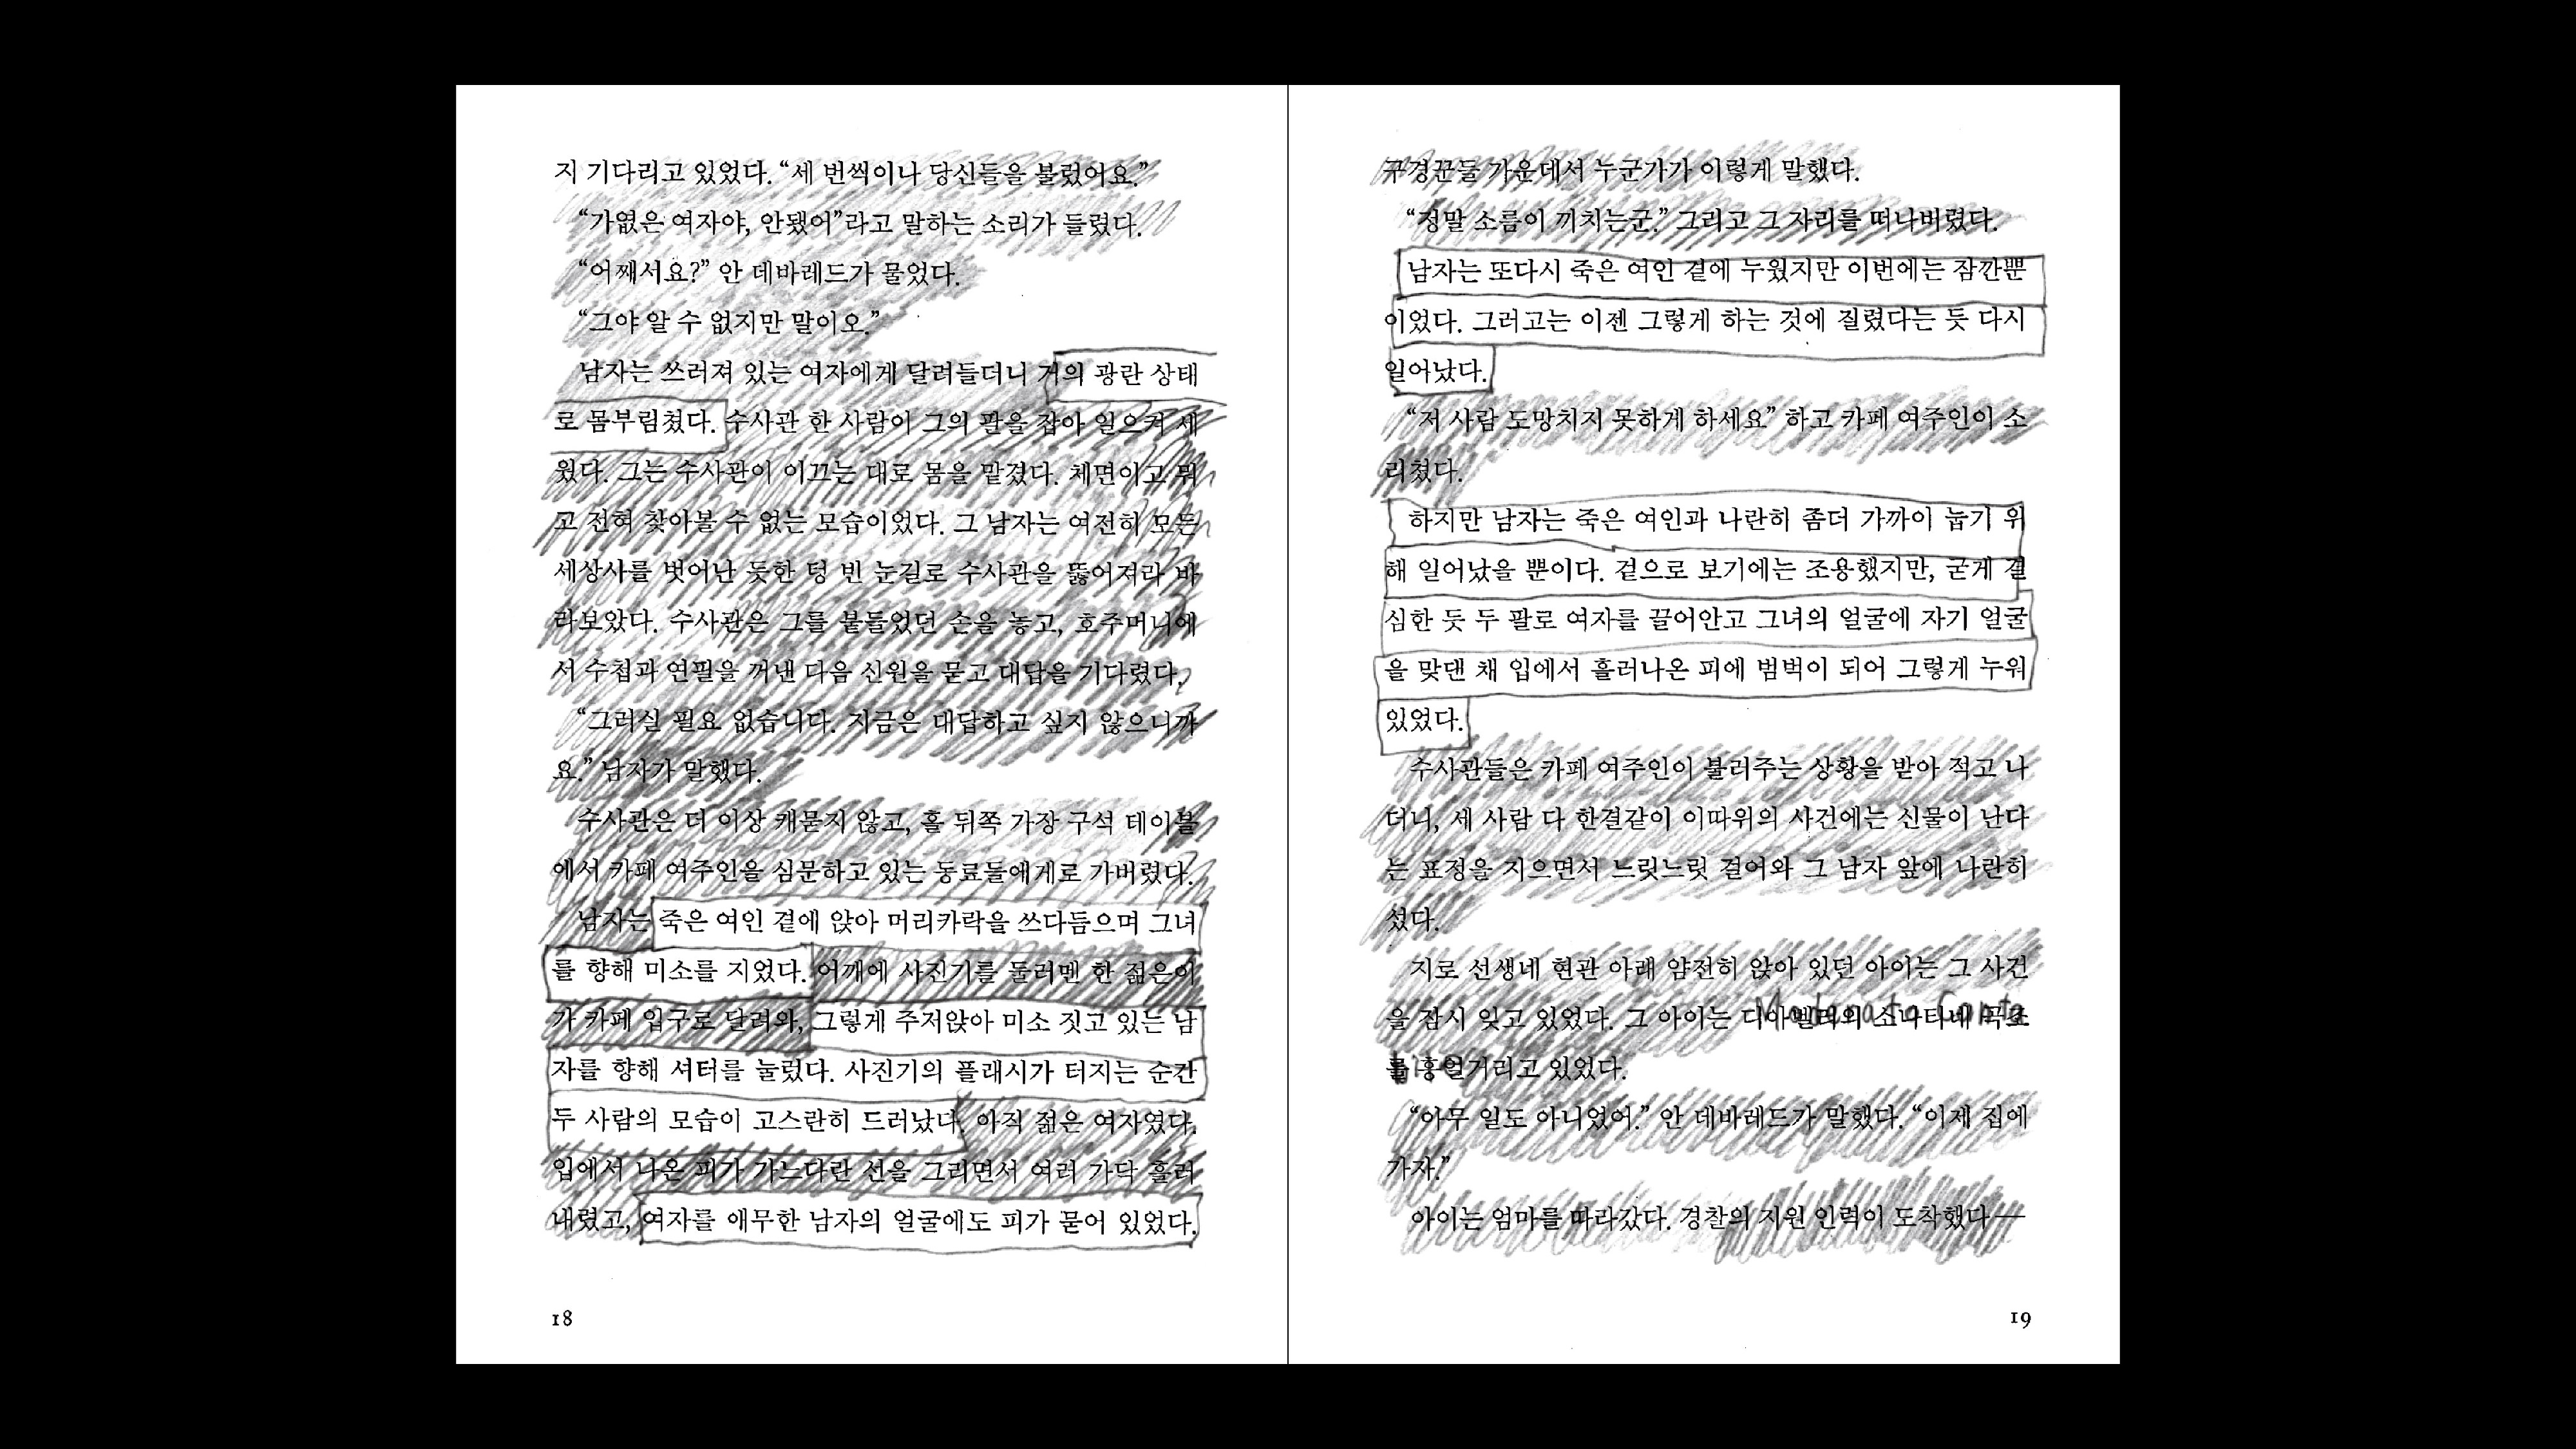 지 기다리고 있었다. “세 번씩이나 당신들을 불렀어요.”
“가엾은 여자야, 안됐어”라고 말하는 소리가 들렸다.
“어째서요?” 안 데바레드가 물었다.
“그야 알 수 없지만 말이오.”
남자는 쓰러져 있는 여자에게 달려들더니 거의 광란 상태
로 몸부림쳤다. 수사관 한 사람이 그의 팔을 잡아 일으켜 세
웠다. 그는 수사관이 이끄는 대로 몸을 맡겼다. 체면이고 뭐
고 전혀 찾아볼 수 없는 모습이었다. 그 남자는 여전히 모든
세상사를 벗어난 듯한 텅 빈 눈길로 수사관을 뚫어져라 바
라보았다. 수사관은 그를 붙들었던 손을 놓고, 호주머니에
서 수첩과 연필을 꺼낸 다음 신원을 묻고 대답을 기다렸다.
“그러실 필요 없습니다. 지금은 대답하고 싶지 않으니까
요.” 남자가 말했다.
수사관은 더 이상 캐묻지 않고, 홀 뒤쪽 가장 구석 테이블
에서 카페 여주인을 심문하고 있는 동료들에게로 가버렸다.
남자는 죽은 여인 곁에 앉아 머리카락을 쓰다듬으며 그녀
를 향해 미소를 지었다. 어깨에 사진기를 둘러멘 한 젊은이
가 카페 입구로 달려와, 그렇게 주저앉아 미소 짓고 있는 남
자를 향해 셔터를 눌렀다. 사진기의 플래시가 터지는 순간
두 사람의 모습이 고스란히 드러났다. 아직 젊은 여자였다.
입에서 나온 피가 가느다란 선을 그리면서 여러 가닥 흘러
내렸고, 여자를 애무한 남자의 얼굴에도 피가 묻어 있었다.
18
구경꾼들 가운데서 누군가가 이렇게 말했다.
“정말 소름이 끼치는군.” 그리고 그 자리를 떠나버렸다.
남자는 또다시 죽은 여인 곁에 누웠지만 이번에는 잠깐뿐
이었다. 그러고는 이젠 그렇게 하는 것에 질렸다는 듯 다시
일어났다.
“저 사람 도망치지 못하게 하세요” 하고 카페 여주인이 소
리쳤다.
하지만 남자는 죽은 여인과 나란히 좀더 가까이 눕기 위
해 일어났을 뿐이다. 겉으로 보기에는 조용했지만, 굳게 결
심한 듯 두 팔로 여자를 끌어안고 그녀의 얼굴에 자기 얼굴
을 맞댄 채 입에서 흘러나온 피에 범벅이 되어 그렇게 누워
있었다.
수사관들은 카페 여주인이 불러주는 상황을 받아 적고 나
더니, 세 사람 다 한결같이 이따위의 사건에는 신물이 난다
는 표정을 지으면서 느릿느릿 걸어와 그 남자 앞에 나란히
섰다.
지로 선생네 현관 아래 얌전히 앉아 있던 아이는 그 사건
을 잠시 잊고 있었다. 그 아이는 디아벨리의 소나티네 곡조
Moderato Canta
를 흥얼거리고 있었다.
“아무 일도 아니었어.” 안 데바레드가 말했다. “이제 집에
가자.”
아이는 엄마를 따라갔다. 경찰의 지원 인력이 도착했다—
19